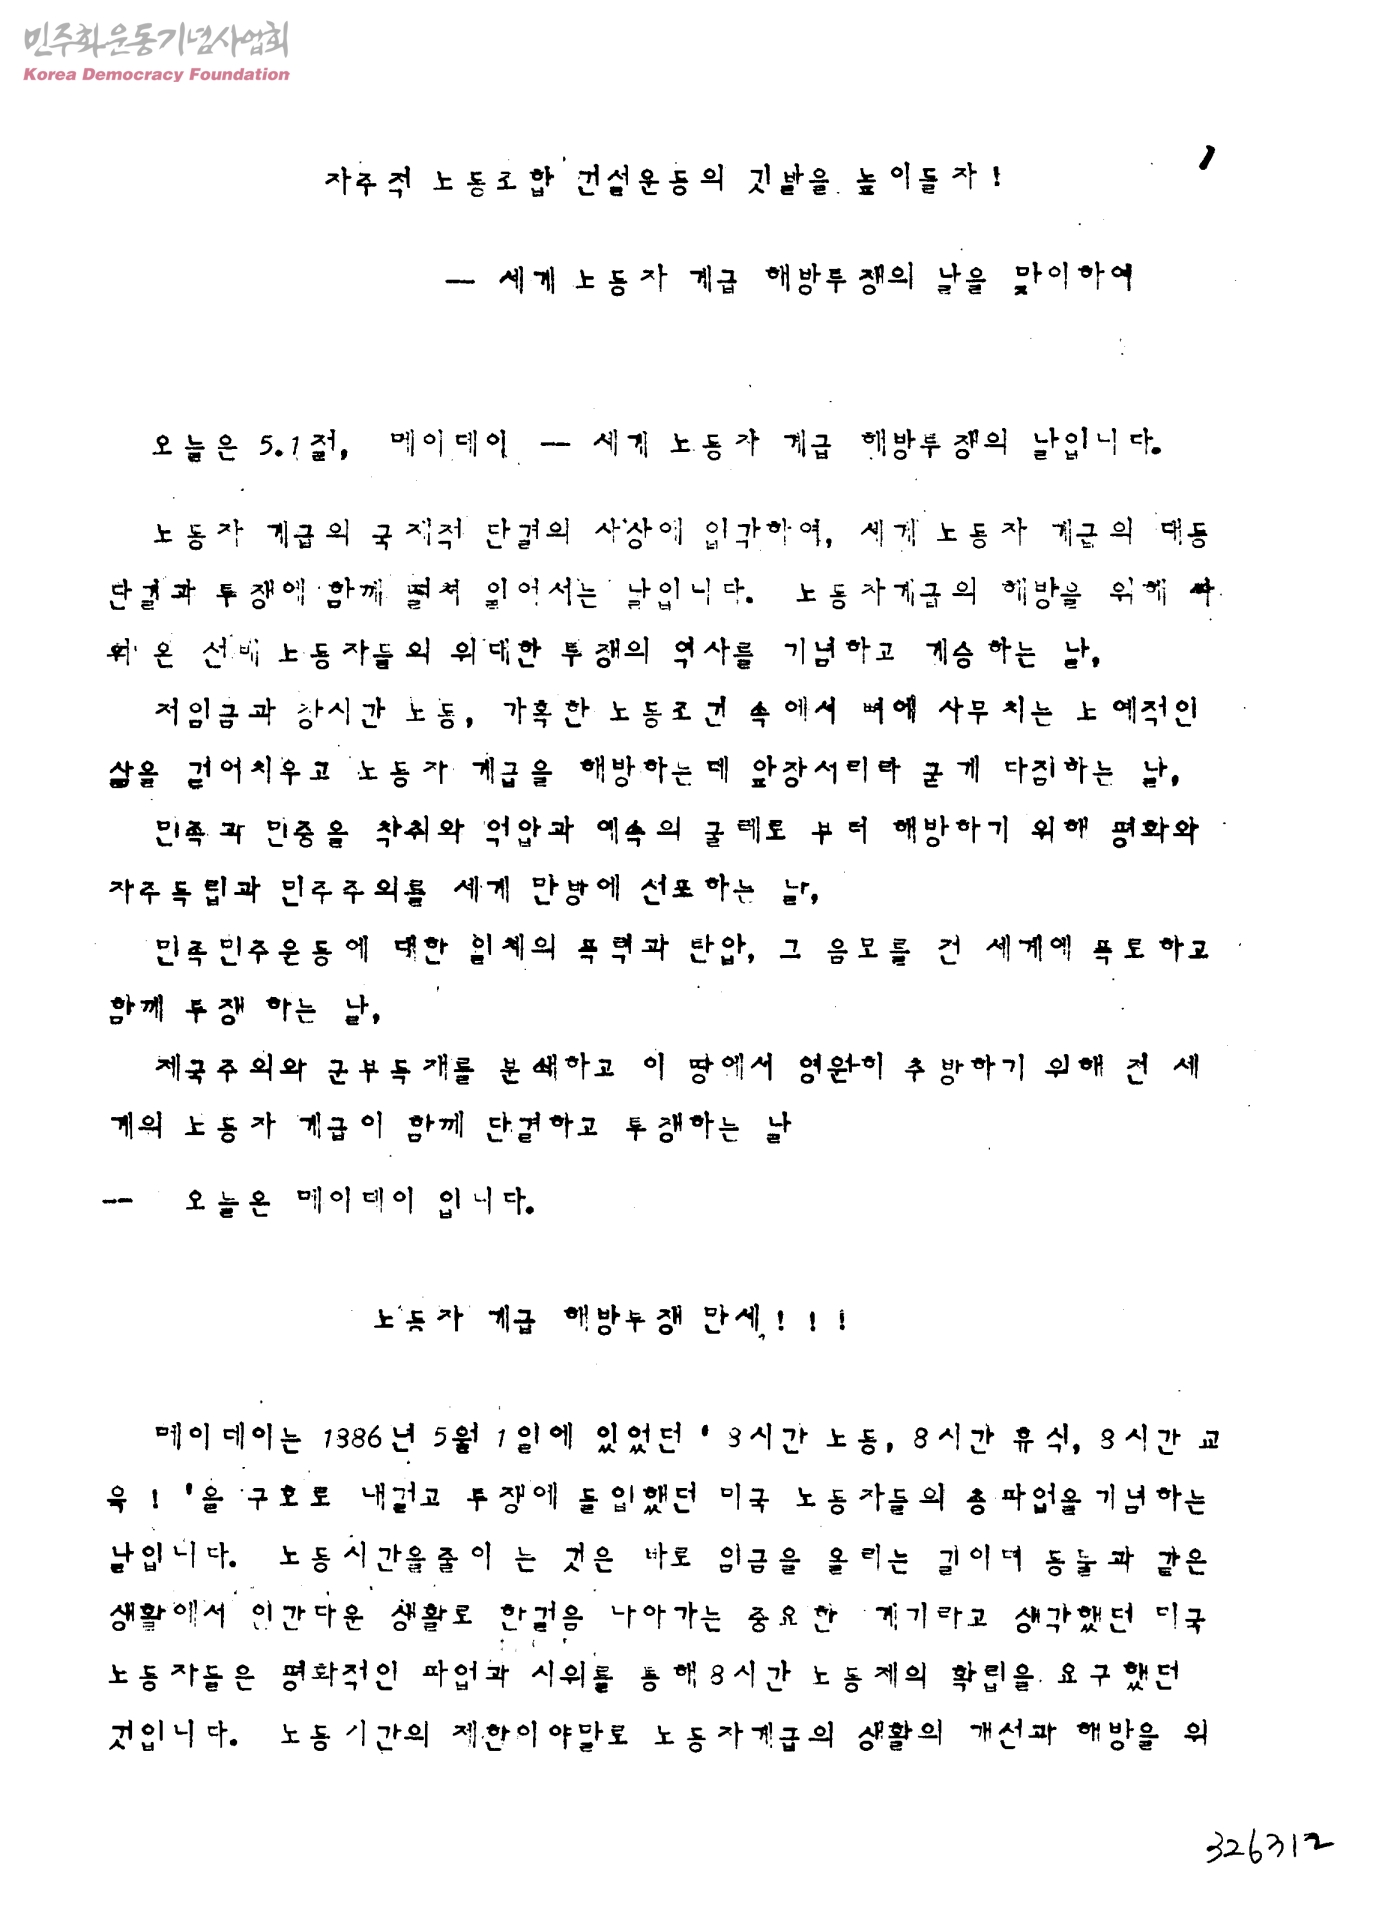 민주화운동기념사업회
Korea Democracy Foundation
1
자주적 노동조합 건설운동의 깃발을 높이들자!
— 세계 노동자 계급 해방투쟁의 날을 맞이하여
오늘은 5.1절, 메이데이 — 세계 노동자 계급 해방투쟁의 날입니다.
노동자 계급의 국제적 단결의 사상에 입각하여, 세계 노동자 계급의 대동
단결과 투쟁에 함께 떨쳐 일어서는 날입니다. 노동자계급의 해방을 위해 싸
워 온 선배 노동자들의 위대한 투쟁의 역사를 기념하고 계승하는 날,
저임금과 장시간 노동, 가혹한 노동조건 속에서 뼈에 사무치는 노예적인
삶을 걷어치우고 노동자 계급을 해방하는데 앞장서리라 굳게 다짐하는 날,
민족과 민중을 착취와 억압과 예속의 굴레로 부터 해방하기 위해 평화와
자주독립과 민주주의를 세계 만방에 선포하는 날,
민족민주운동에 대한 일체의 폭력과 탄압, 그 음모를 전 세계에 폭로하고
함께 투쟁 하는 날,
제국주의와 군부독재를 분쇄하고 이 땅에서 영원히 추방하기 위해 전 세
계의 노동자 계급이 함께 단결하고 투쟁하는 날
-- 오늘은 메이데이 입니다.
노동자 계급 해방투쟁 만세!!!
메이데이는 1886년 5월 1일에 있었던 ' 8시간 노동, 8시간 휴식, 8시간 교
육 ! '을 구호로 내걸고 투쟁에 돌입했던 미국 노동자들의 총파업을 기념하는
날입니다. 노동시간을줄이 는 것은 바로 임금을 올리는 길이며 동물과 같은
생활에서 인간다운 생활로 한걸음 나아가는 중요한 계기라고 생각했던 미국
노동자들은 평화적인 파업과 시위를 통해 8시간 노동제의 확립을 요구했던
것입니다. 노동시간의 제한이야말로 노동자계급의 생활의 개선과 해방을 위
326312